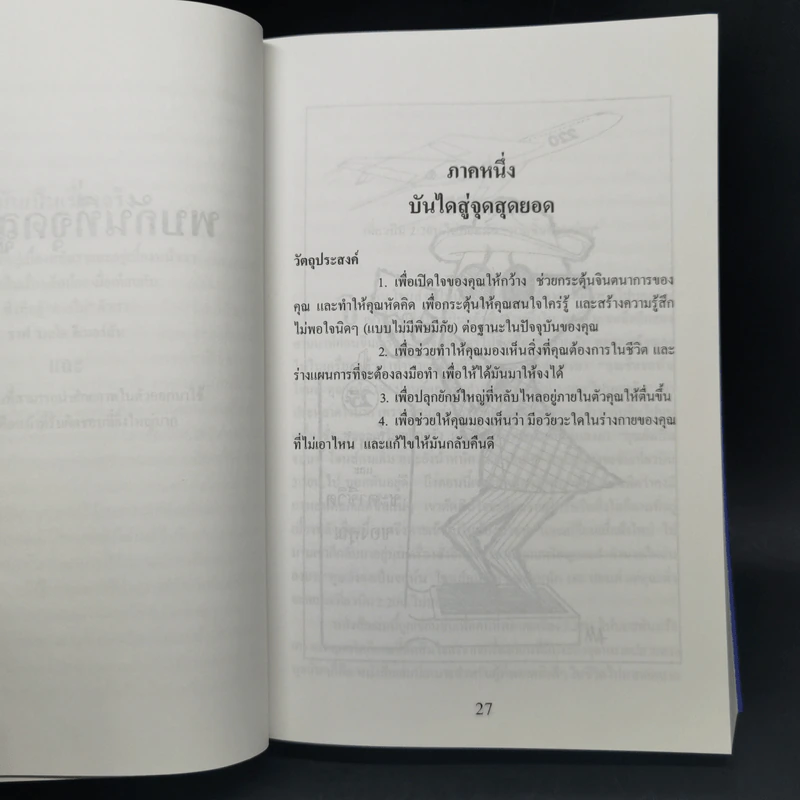 ภาคหนึ่ง
บันไดสู่จุดสุดยอด
วัตถุประสงค์
1. เพื่อเปิดใจของคุณให้กว้าง ช่วยกระตุ้นจินตนาการของ
คุณ และทำให้คุณหัดคิด เพื่อกระตุ้นให้คุณสนใจใคร่รู้ และสร้างความรู้สึก
ไม่พอใจนิดๆ (แบบไม่มีพิษมีภัย) ต่อฐานะในปัจจุบันของคุณ
2. เพื่อช่วยทำให้คุณมองเห็นสิ่งที่คุณต้องการในชีวิต และ
ร่างแผนการที่จะต้องลงมือทำ เพื่อให้ได้มันมาให้จงได้
3. เพื่อปลุกยักษ์ใหญ่ที่หลับไหลอยู่ภายในตัวคุณให้ตื่นขึ้น
4. เพื่อช่วยให้คุณมองเห็นว่า มีอวัยวะใดในร่างกายของคุณ
ที่ไม่เอาไหน และแก้ไขให้มันกลับคืนดี
27